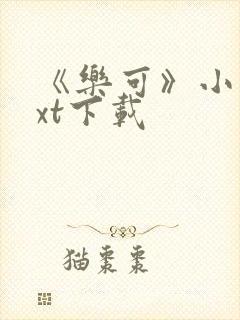 《樂可》小
xt下載
猫棗棗